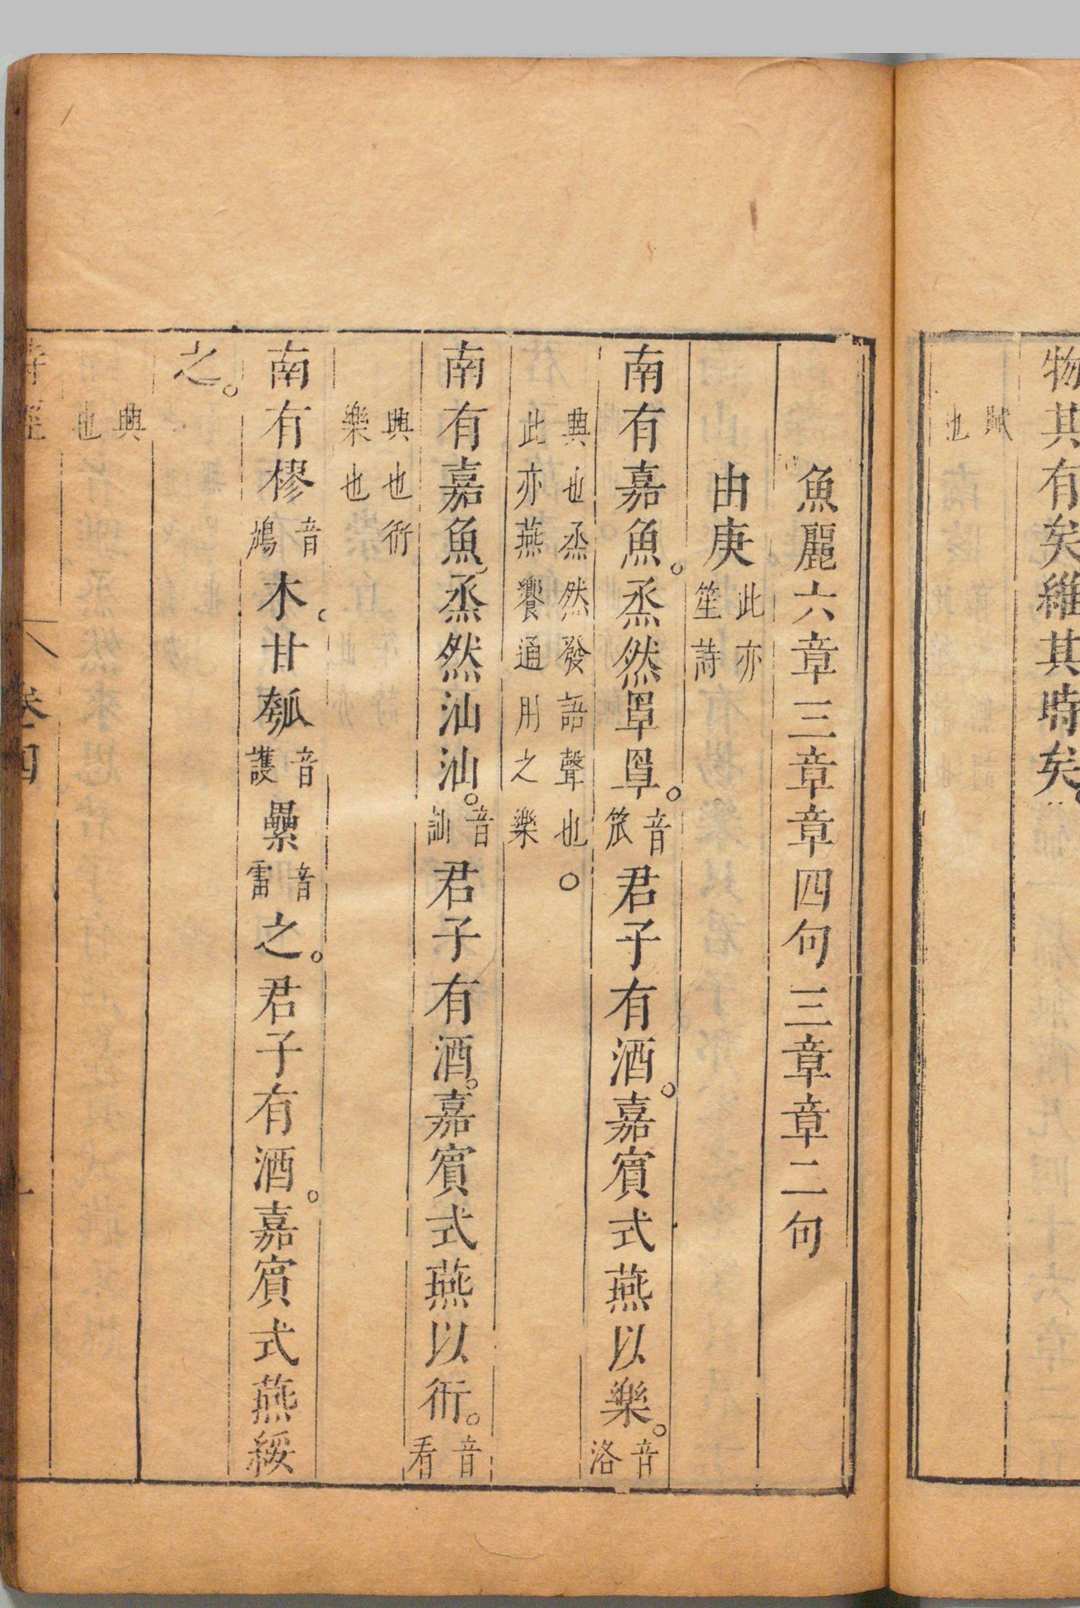 物其有矣維其時矣。
賦
也
魚麗六章三章章四句三章章二句
由庚。此亦
笙詩
南有嘉魚。烝然罩罩。音
笟君子有酒。嘉賓式燕以樂。音
洛
興也烝然發語聲也○
此亦燕饗通用之樂
南有嘉魚。烝然汕汕。音
訕君子有酒。嘉賓式燕以衎。音
看
興也衎
樂也
南有樛音
鳩木。甘瓠音
護纍音
雷之。君子有酒。嘉賓式燕綏
之。
興
也
詩經 卷四